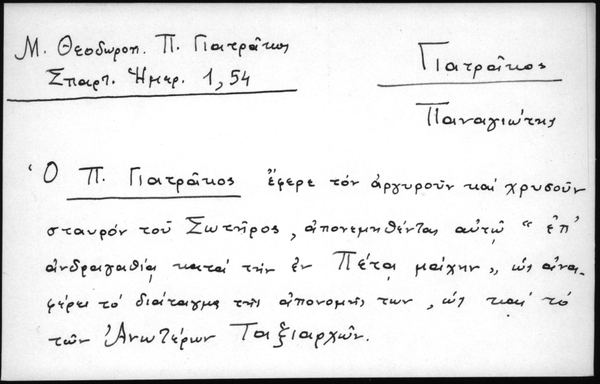 Μ. Θεοδωροπ. Π. Γιατρᾶκος
Σπαρτ. Ἡμερ. 1, 54
Γιατρᾶκος
Παναγιώτης
Ὁ Π. Γιατρᾶκος ἔφερε τόν ἀργυροῦν καί χρυσοῦν
σταυρόν τοῦ Σωτῆρος, ἀπονεμηθέντας αὐτῷ "ἐπ'
ἀνδραγαθίᾳ κατά τήν ἐν Πέτᾳ μάχην", ὡς ἀνα-
φέρει τό διάταγμα τῆς ἀπονομῆς των, ὡς καί τό
τῶν Ἀνωτέρων Ταξιαρχῶν.